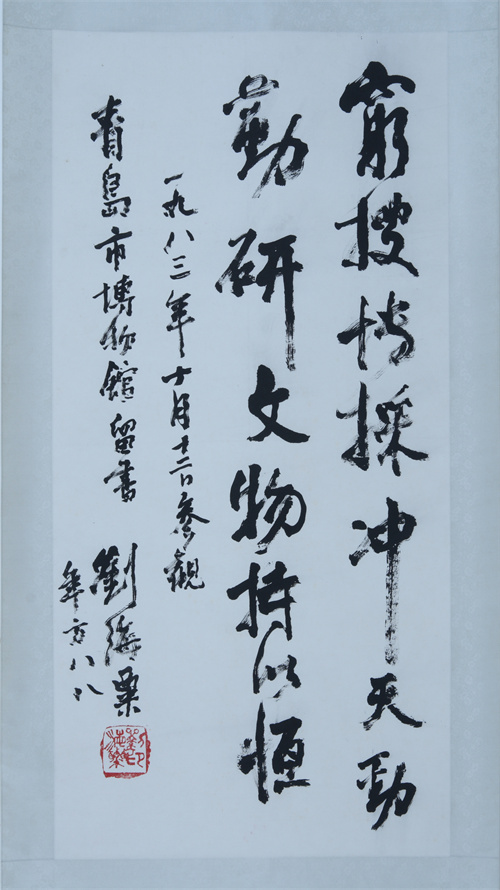 窮搜博採冲天勁
勤研文物持以恒
一九八三年十月十二日参觀
青島市博物館留書
劉海粟
年方八八
劉海粟印